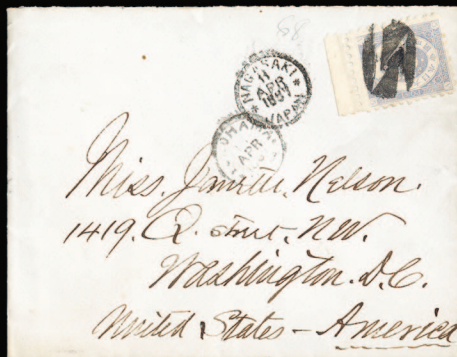 68
NAGASAKI
11
APR
JAPAN
APR
Miss. Janette. Nelson.
1419. Q. street. NW.
Washington. D.C.
United States - America